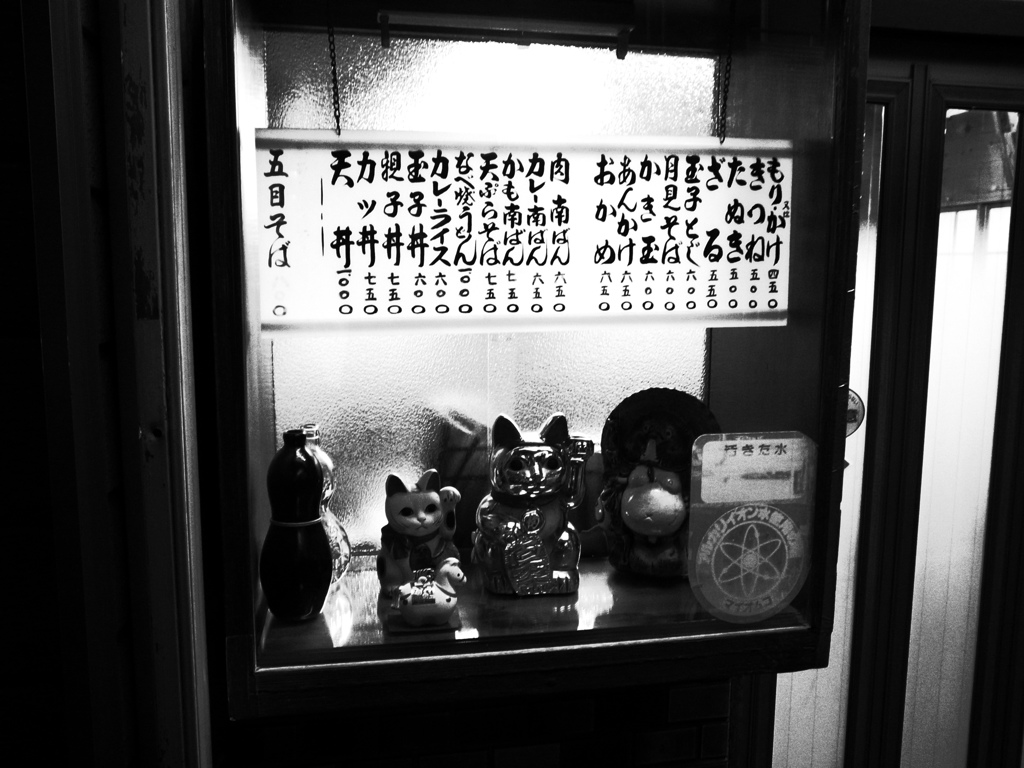 もり・かけ 四五〇
きつね 五〇〇
たぬき 五〇〇
ざる 五五〇
玉子とじ 六〇〇
月見そば 六〇〇
かき玉 六〇〇
あんかけ 六五〇
おかめ 六五〇
肉南ばん 六五〇
カレー南ばん 六五〇
かも南ばん 七五〇
天ぷらそば 七五〇
なべ焼うどん 一〇〇〇
カレーライス 六〇〇
玉子丼 六〇〇
親子丼 七五〇
カツ丼 七五〇
天丼 一〇〇〇
五目そば
活きた水
アルカリイオン水
マイナルコ